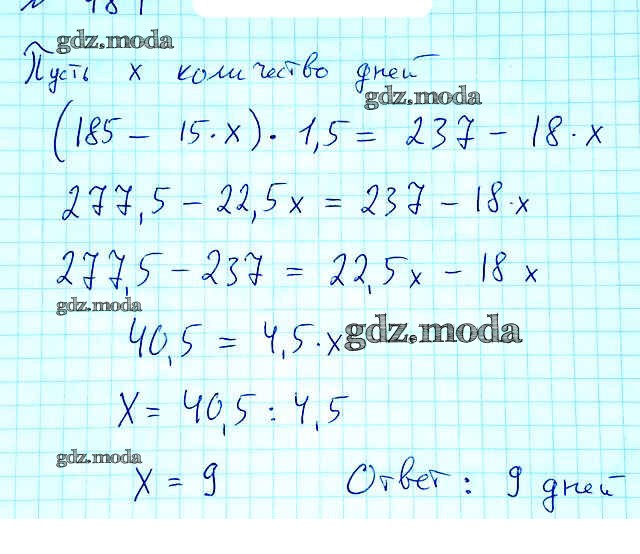 gdz.moda
Пусть x количество дней
gdz.moda
(185 - 15·x)·1,5 = 237 - 18·x
277,5 - 22,5x = 237 - 18·x
277,5 - 237 = 22,5x - 18 x
gdz.moda
40,5 = 4,5·x
gdz.moda
X = 40,5 : 4,5
gdz.moda
X = 9 Ответ: 9 дней